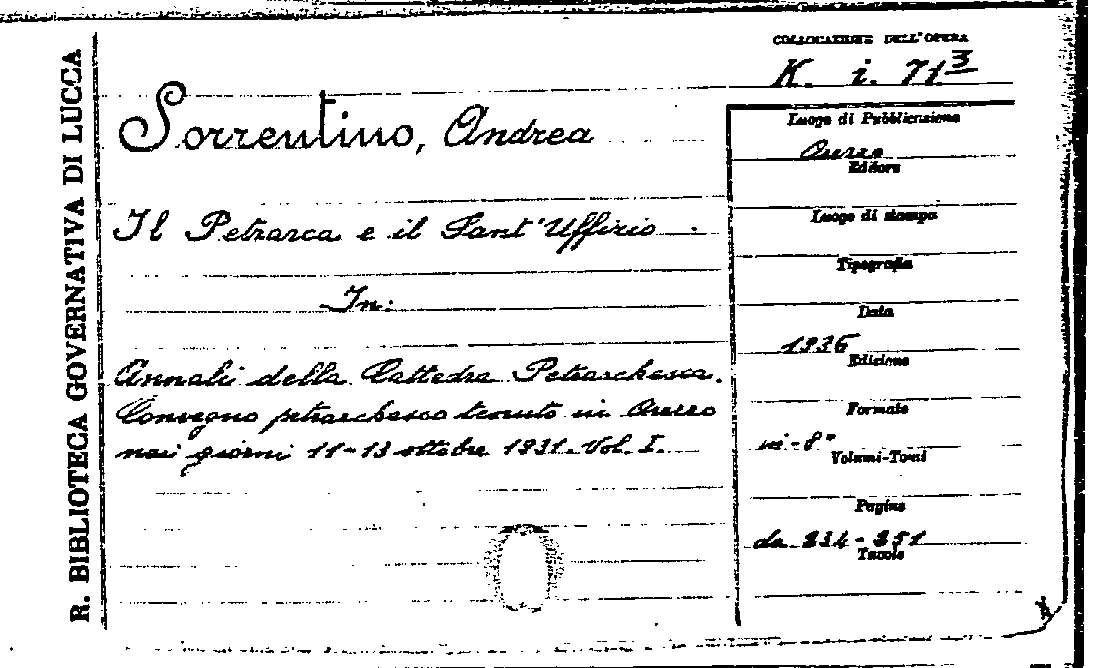 R. BIBLIOTECA GOVERNATIVA DI LUCCA
COLLOCAZIONE DELL'OPERA
K. i. 71³
Sorrentino, Andrea
Il Petrarca e il Sant'Uffizio.
In:
Annali della Cattedra Petrarchesca.
Convegno petrarchesco tenuto in Arezzo
nei giorni 11-13 ottobre 1931. Vol. I.
Luogo di Pubblicazione
Arezzo
Editore
Luogo di stampa
Tipografia
Data
1936
Edizione
Formato
in-8°
Volumi-Tomi
Pagine
da 234-251
Tavole